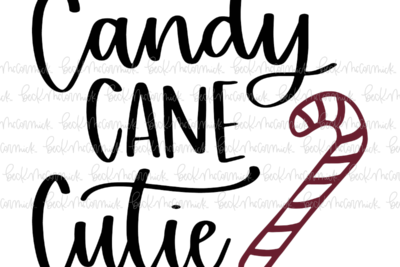 Candy
CANE
Cutie